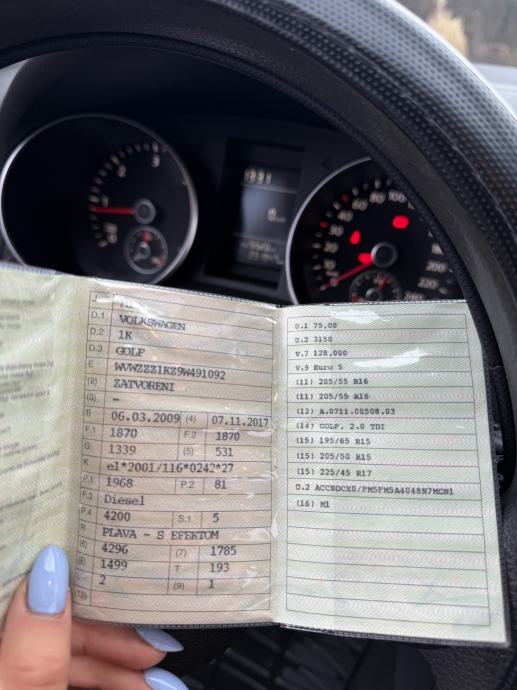 1331
J M1
D.1 VOLKSWAGEN
D.2 1K
D.3 GOLF
E WVWZZZ1KZ9W491092
(2) ZATVORENI
(3) -
B 06.03.2009 (4) 07.11.2017
F.1 1870 F.2 1870
G 1339 (5) 531
K e1*2001/116*0242*27
P.1 1968 P.2 81
P.3 Diesel
P.4 4200 S.1 5
R PLAVA - S EFEKTOM
(6) 4296 (7) 1785
(8) 1499 T 193
L 2 (9) 1
(13)
U.1 75,00
U.2 3150
V.7 128,000
V.9 Euro 5
(11) 205/55 R16
(11) 205/55 R16
(12) A.0711.00508.03
(14) GOLF, 2.0 TDI
(15) 195/65 R15
(15) 205/50 R15
(15) 225/45 R17
D.2 ACCBDCX0/FM5FM5A4048N7MGN1
(16) M1